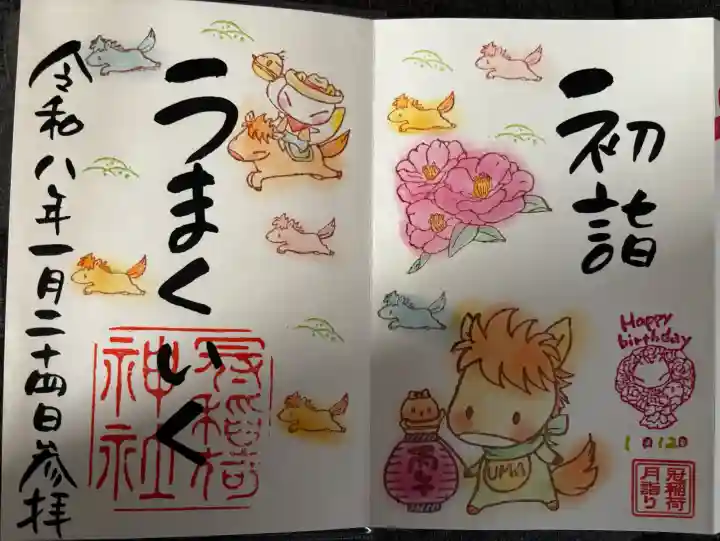 初詣
Happy
birthday
UMA
冠稲荷
月詣り
うまくいく
冠稲荷
神社
令和八年一月二十四日参拝